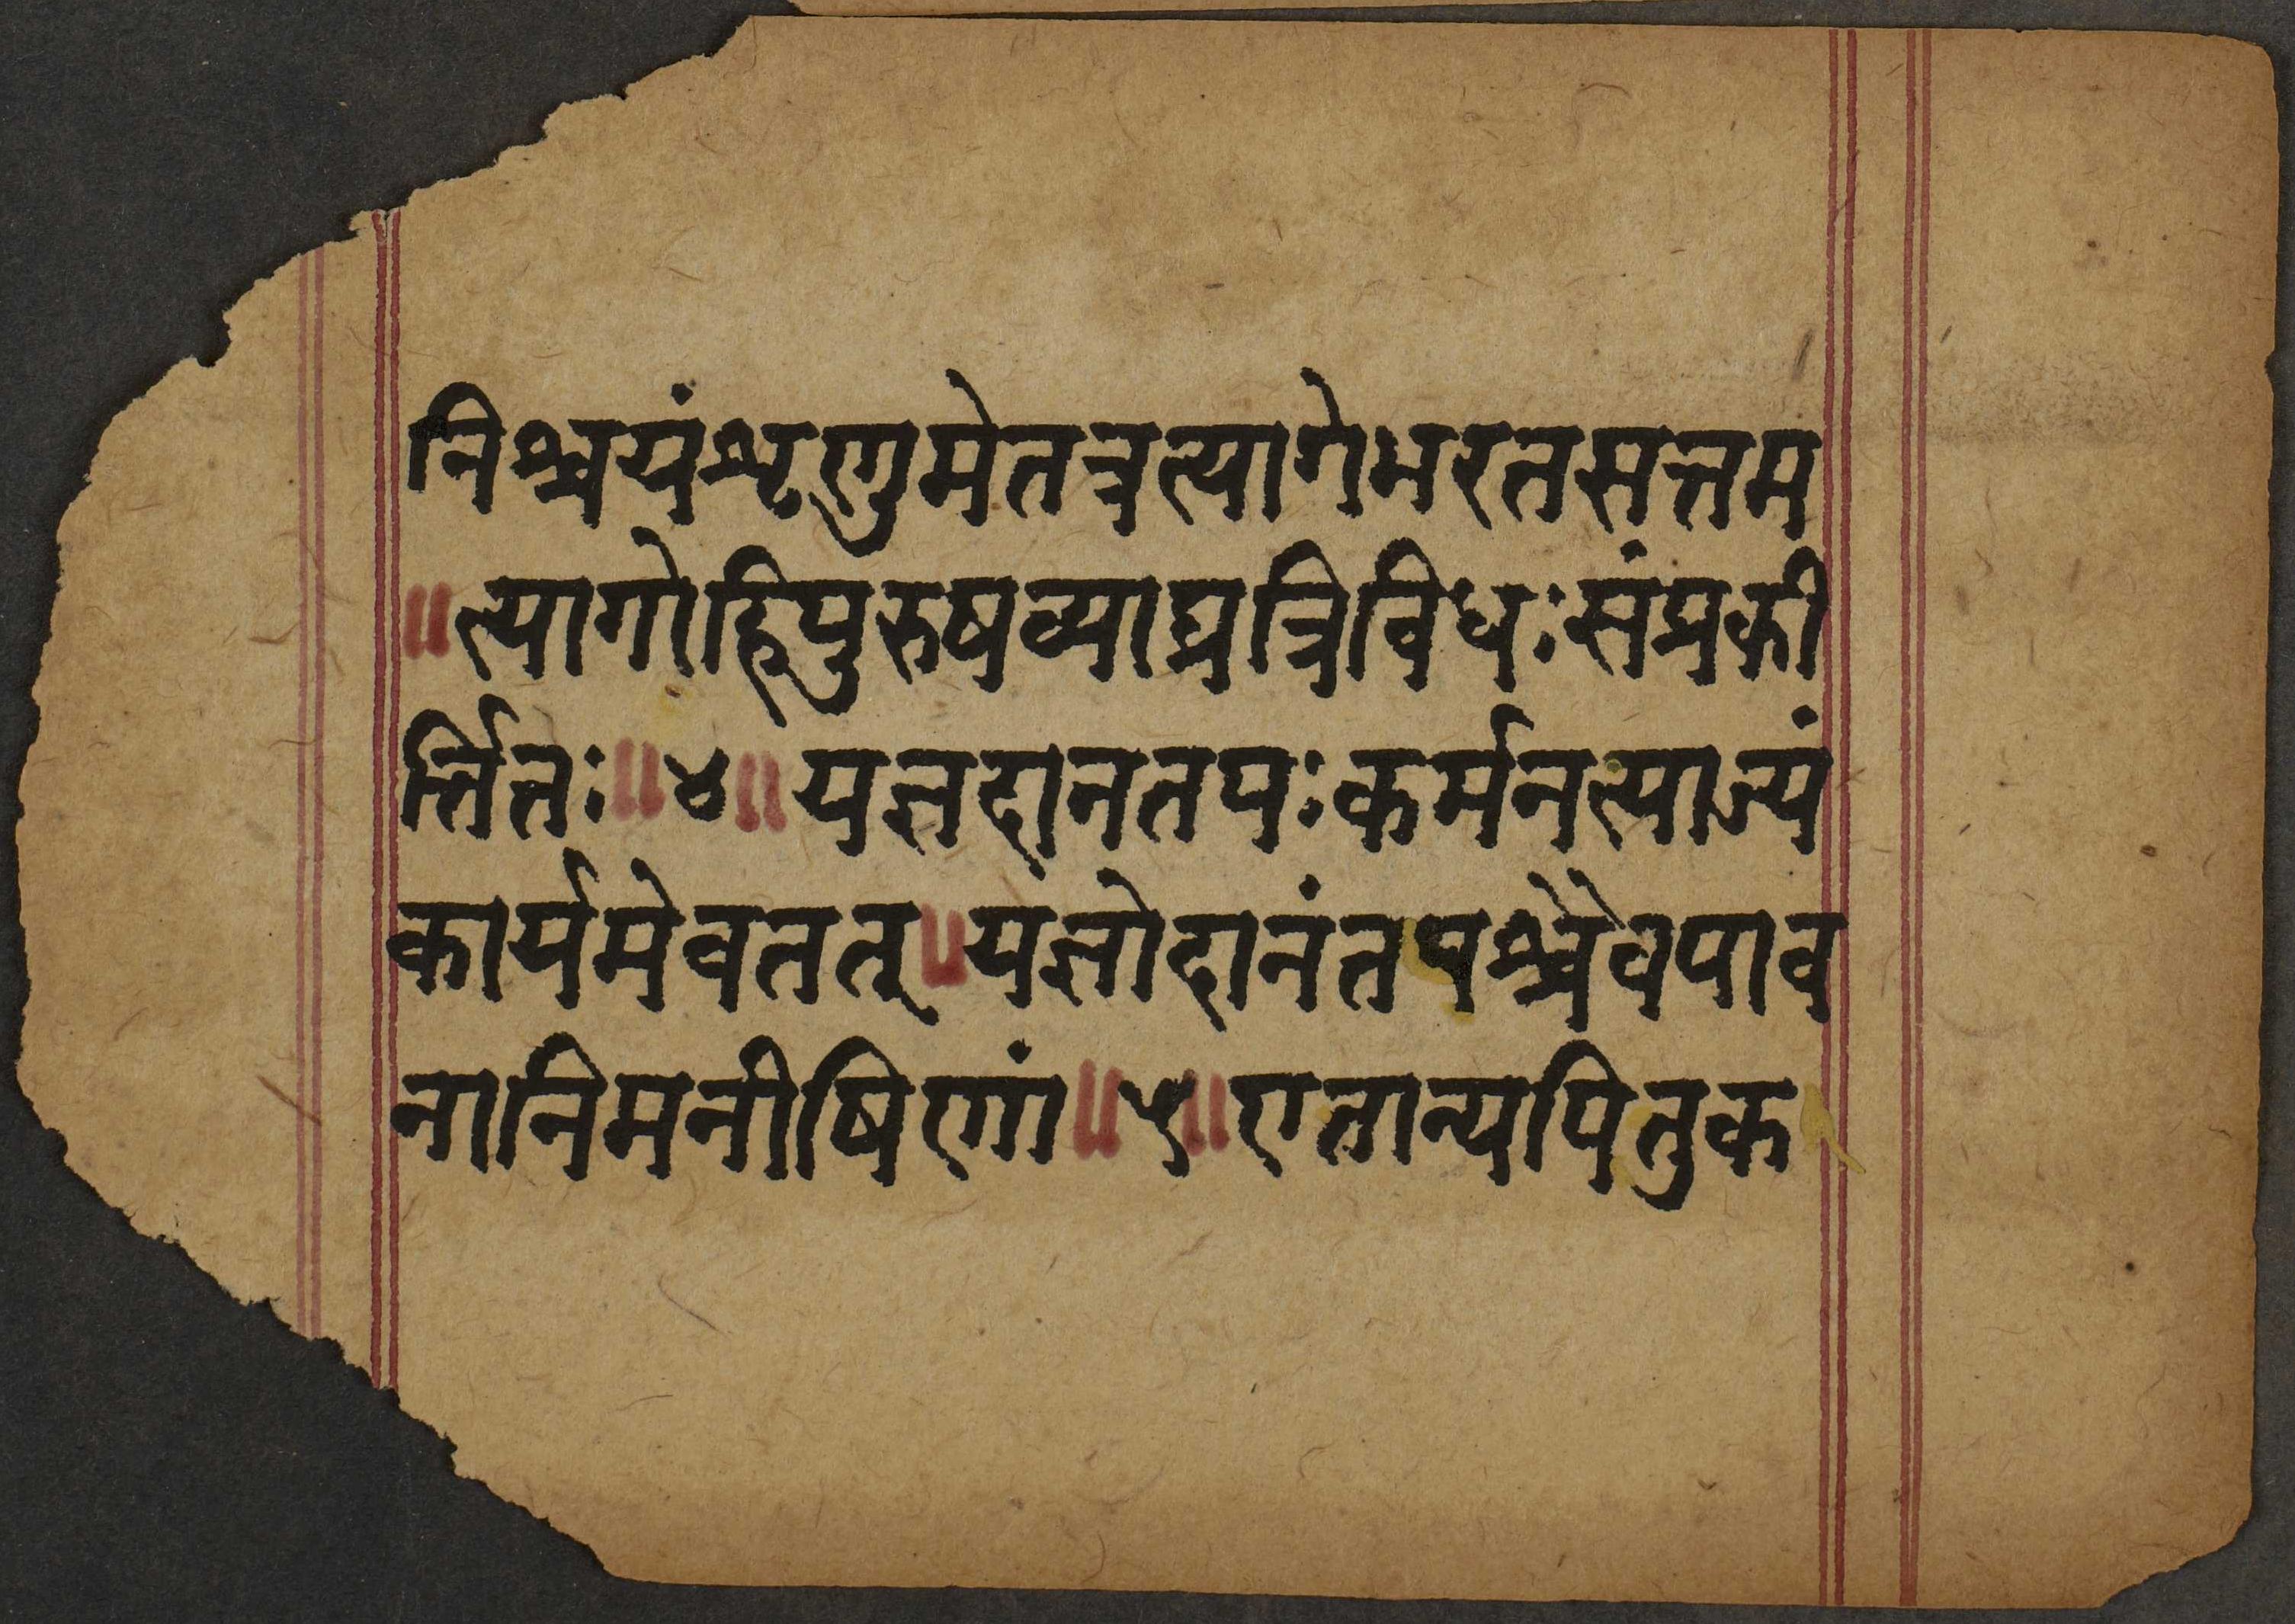 निश्चयंशृणुमेतत्रत्यागेभरतसत्तम
॥त्यागोहिपुरुषव्याघ्रत्रिविधःसंप्रकी
र्त्तितः॥४॥यज्ञदानतपःकर्मनत्याज्यं
कार्यमेवतत्॥यंज्ञोदानंतपश्चैवपाव
नानिमनीषिणां॥५॥एतान्यपितुक